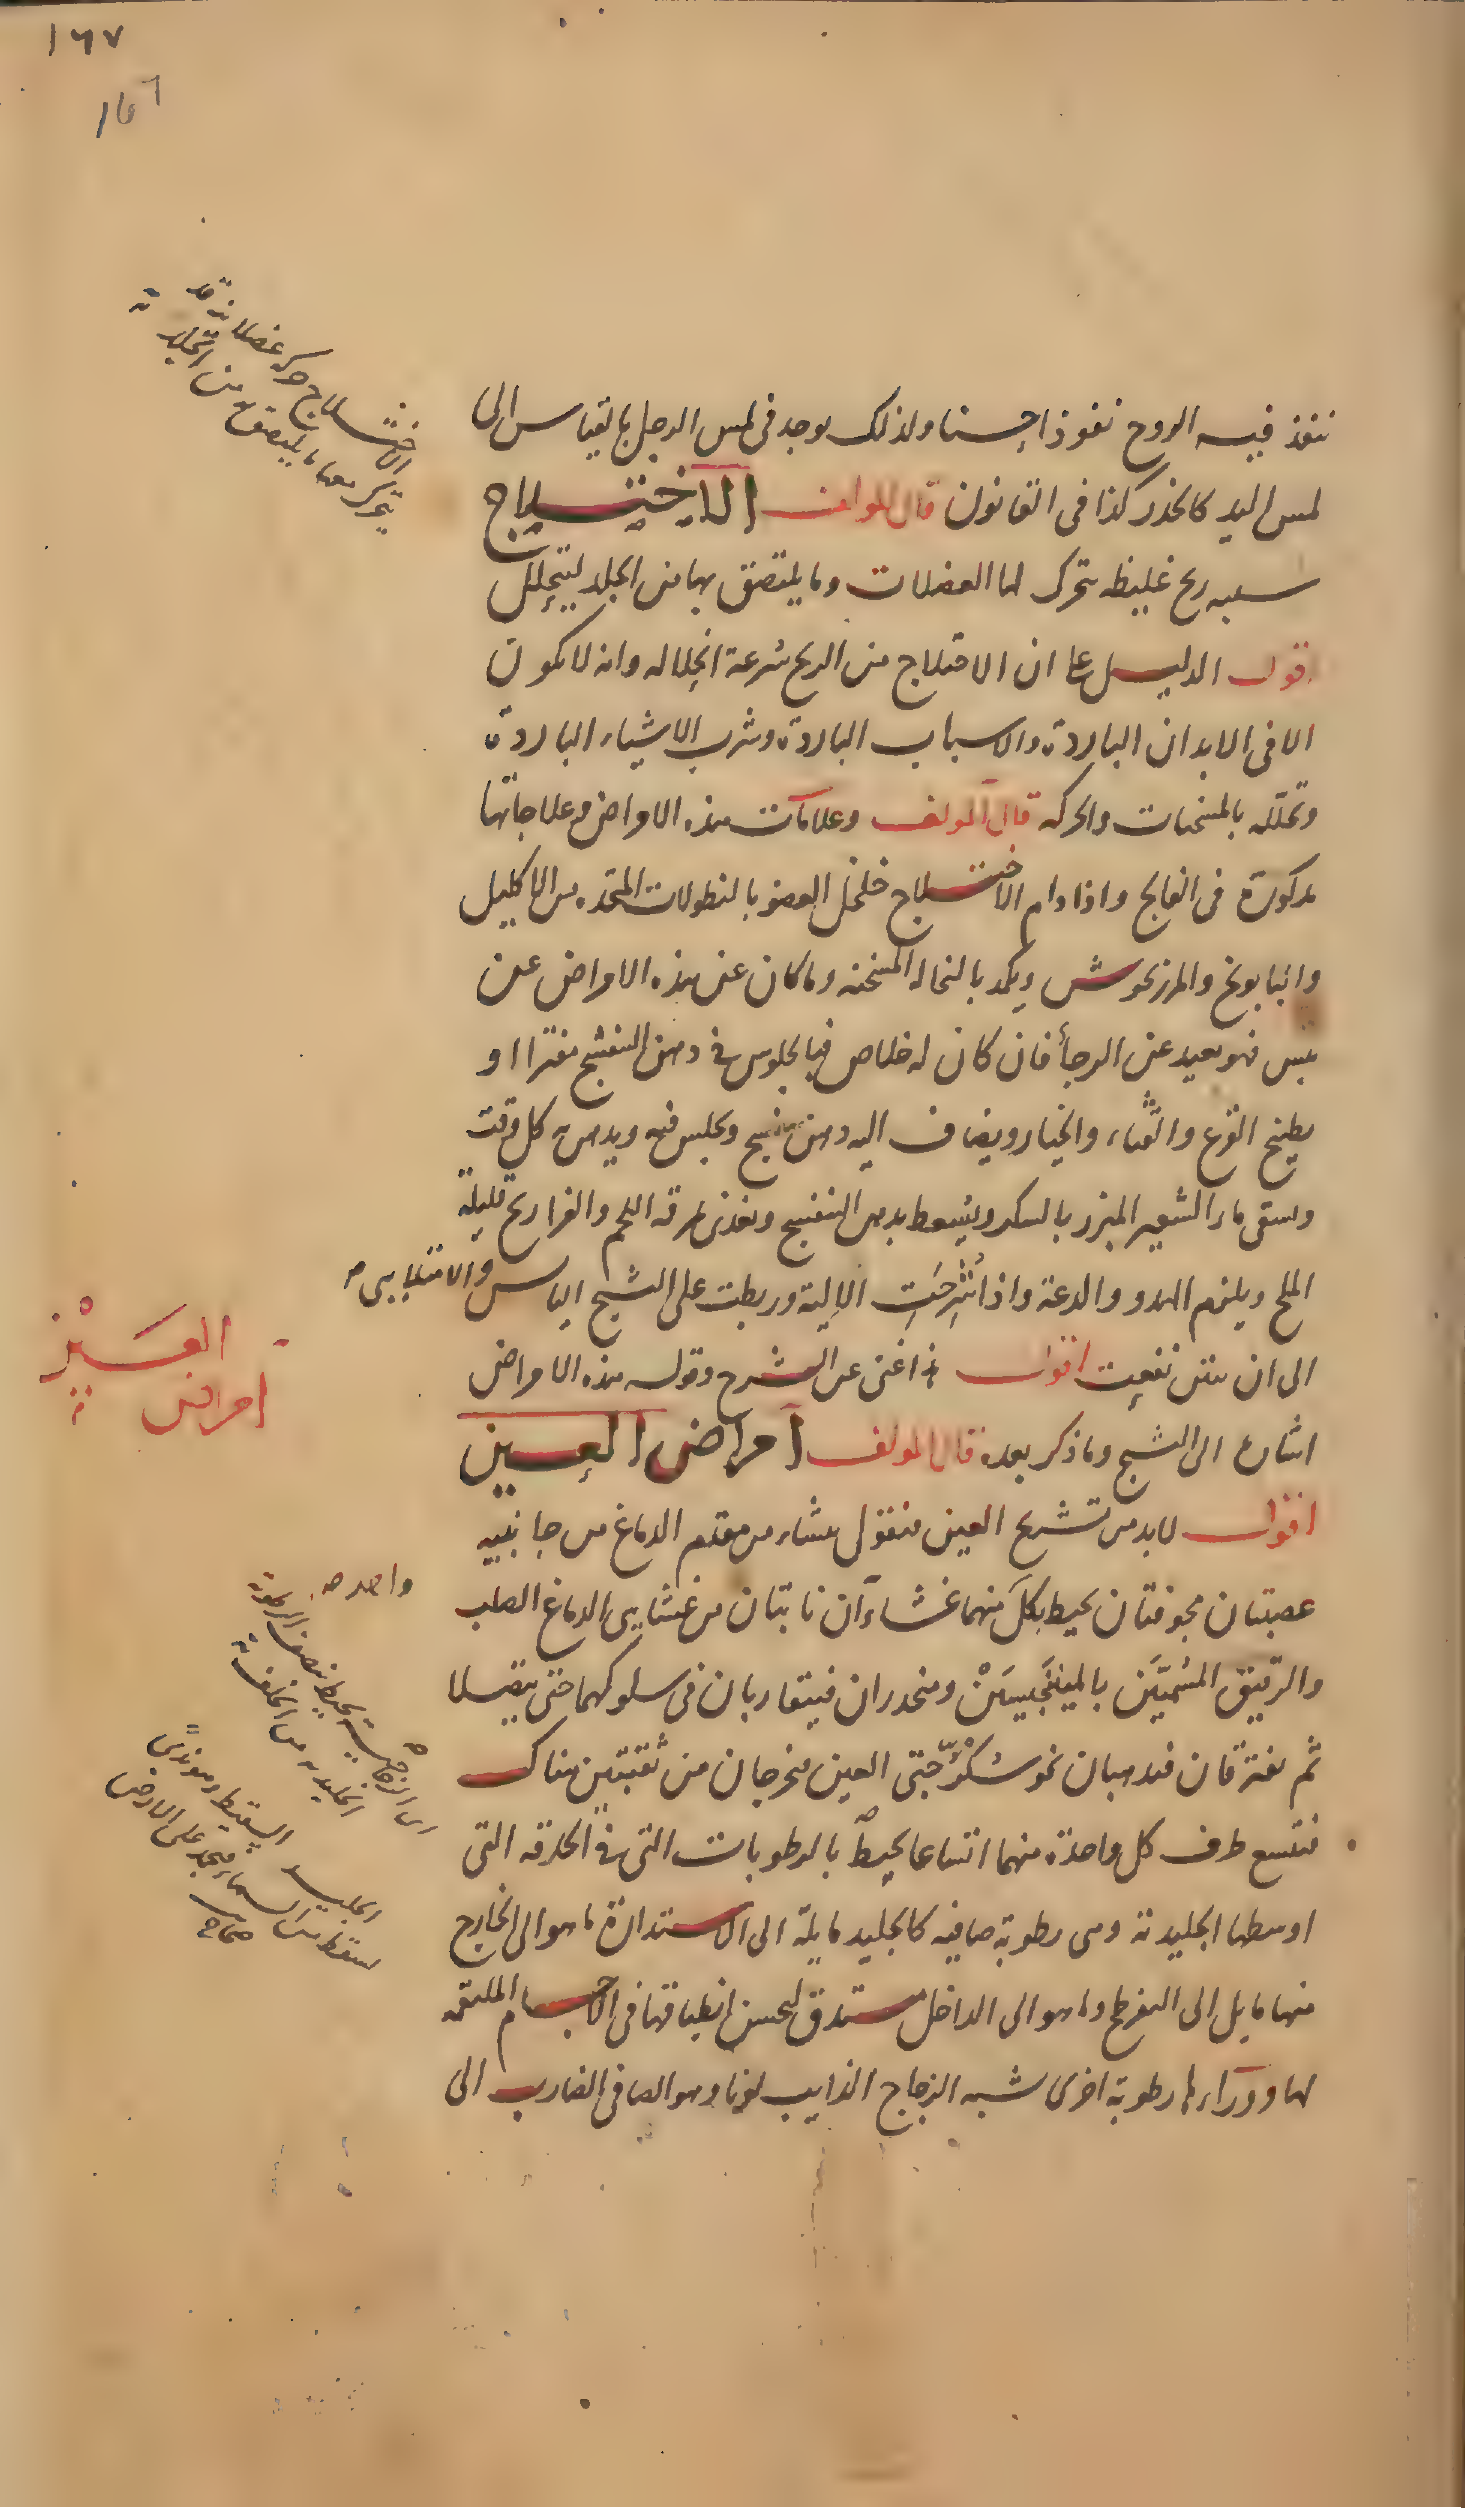 ١٦٧
١٦٦
الاختلاج حركة عضلانية قد
يتحرك معها ما يلتصق بها من الجلد
تنفذ فيه الروح نفوذا حسنا ولذلك يوجد فى لمس الرجل بالقياس الى
لمس اليد كالخدر كذا فى القانون قال المولف الاختلاج
سببه ريح غليظه تتحرك لها العضلات وما يلتصق بها من الجلد ليتحلل
اقول الدليل على ان الاختلاج من الريح سرعة انحلاله وانه لا يكون
الا فى الابدان الباردة والاسباب الباردة وشرب الاشياء الباردة
وتحلله بالمسخنات والحركه قال المولف وعلامات هذه الامراض وعلاجاتها
مذكورة فى الفالج واذا دام الاختلاج خلخل العضو بالنطولات المتخذه من الاكليل
والبابونج والمرزنجوش ويكمد بالنخاله المسخنه وما كان عن هذه الامراض عن
يبس فهو بعيد عن الرجأ فان كان له خلاص فبالجلوس فى دهن البنفسج مفترا او
بطبيخ القرع والقثاء والخيار ويضاف اليه دهن بنفسج ويجلس فيه ويدهن به كل وقت
ويسقى ماء الشعير المبزر بالسكر ويسعط بدهن البنفسج ويغذى بمرقه اللحم والفراريج قليلة
الملح ويلزم الهدو والدعة واذا شرحت الالية وربطت على التشنج اليابس والامتلايى
الى ان تنتن نفعت اقول هذا غنى عن الشرح وقوله هذه الامراض
اشارة الى التشنج وما ذكر بعده قال المولف امراض العين
امراض العين
اقول لابد من تشريح العين فنقول منشاء من مقدم الدماغ من جانبيه
عصبتان مجوفتان يحيط بكل منهما غشاءآن نابتان من غشايى الدماغ الصلب
واحده
والرقيق المسميين بالمننجيسين وينحدران فيتقاربان فى سلوكهما حتى يتصلا
ثم يفترقان فيذهبان نحو حجتى العين فيخرجان من ثقبتين هناك
فتتسع طرف كل واحدة منهما اتساعا يحيط بالرطوبات التى فى الحدقه التى
اوسطها الجليدية وهى رطوبة صافيه كالجليد مايلة الى الاستدارة ما هو الى الخارج
منها مايل الى التفرطح وما هو الى الداخل مستدق ليحسن انطباقها فى الاجسام الملتقمه
لها ووراءها رطوبة اخرى شبه الزجاج الذايب لونا وهو الصافى الضارب الى
اى الزجاجية يحيط بنصف الرطوبة
الجليديه من الخلف
الجليد السقيط وهو ندى
يسقط من السماء فيجمد على الارض
صحاح